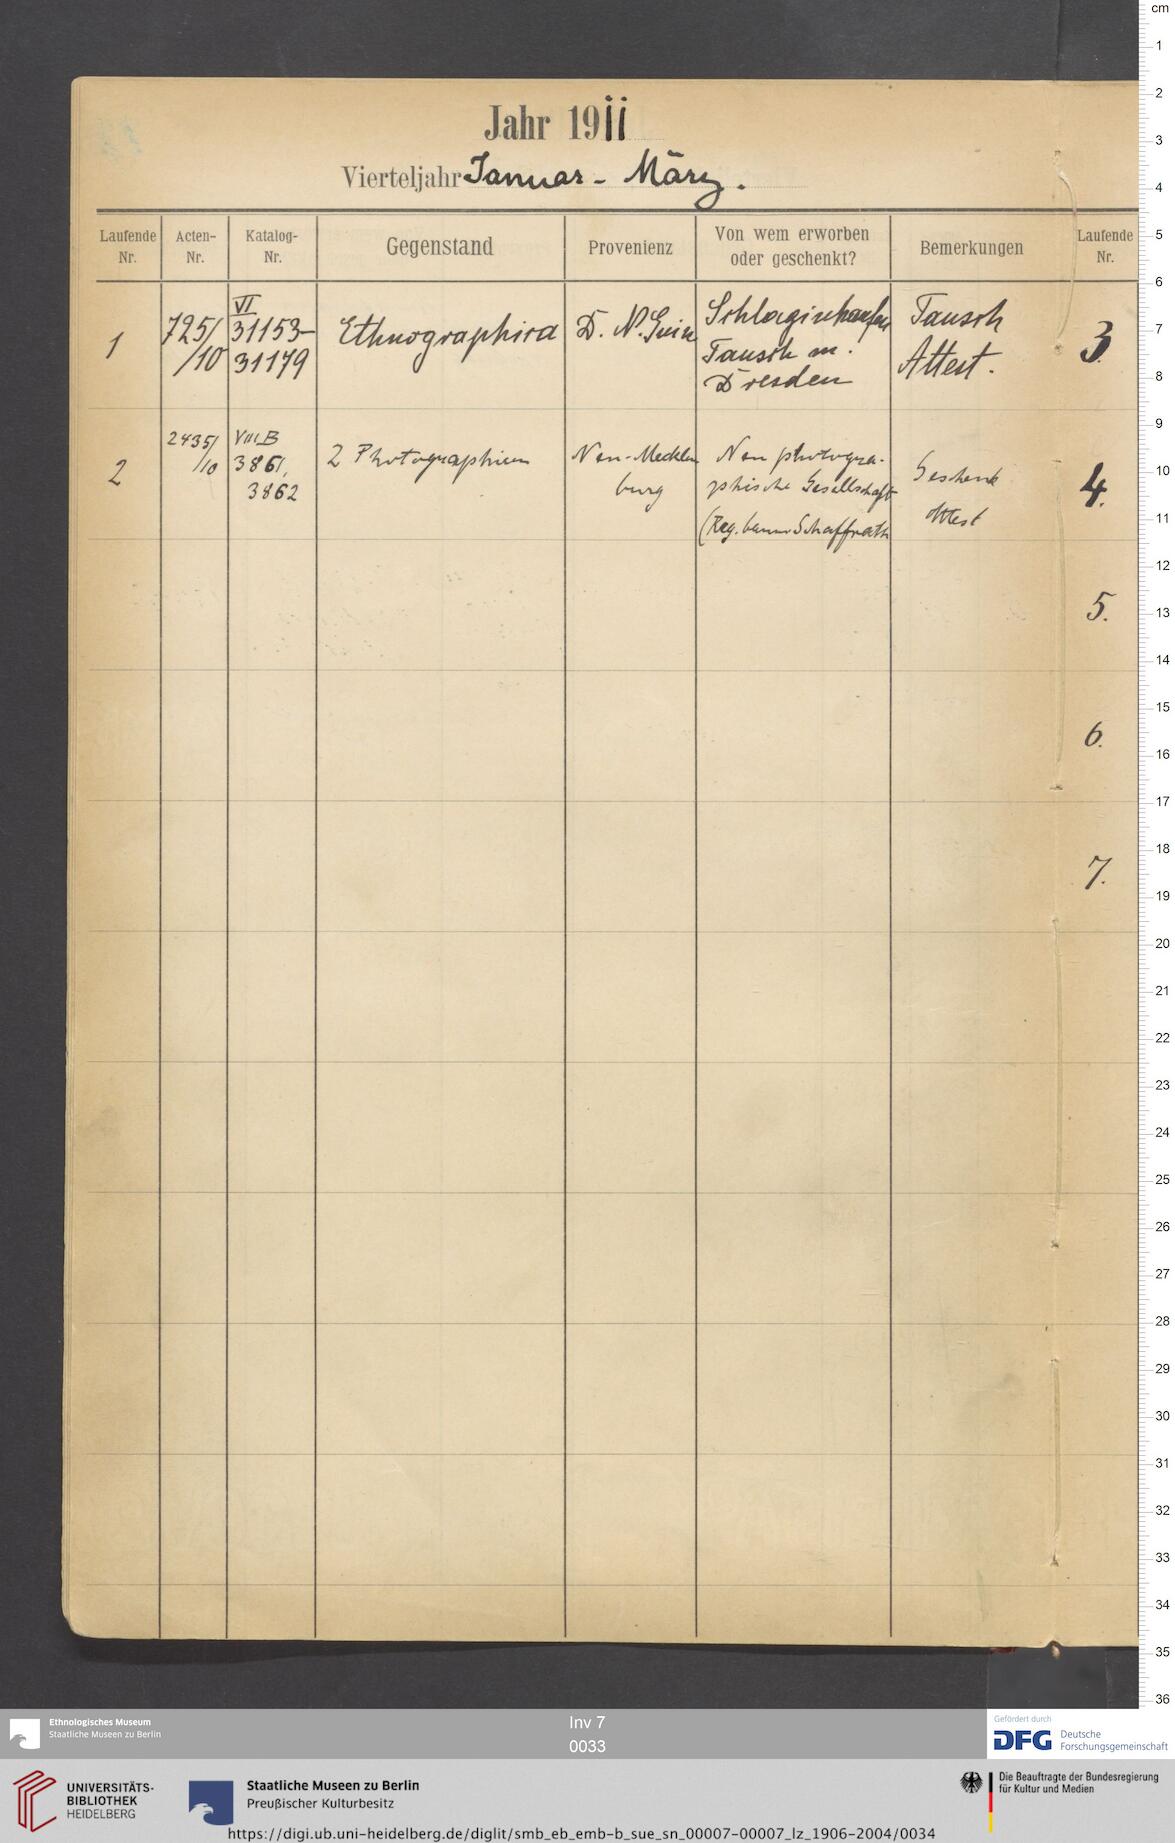 Jahr 1911
Vierteljahr Januar - März.
Laufende Nr.
Acten-Nr.
Katalog-Nr.
Gegenstand
Provenienz
Von wem erworben oder geschenkt?
Bemerkungen
Laufende Nr.
1
725/
/10
VI
31153-
31179
Ethnographica
D. N. Guin
Schlaginhaufen
Tausch m.
Dresden
Tausch
Attest.
3.
2
2435/
/10
VIII B
3861,
3862
2 Photographien
Neu-Mecklen
burg
Neu photogra-
phische Gesellschaft
(Reg. baum Schaffrath
Geschenk
Attest
4.
5.
6.
7.
cm
1
2
3
4
5
6
7
8
9
10
11
12
13
14
15
16
17
18
19
20
21
22
23
24
25
26
27
28
29
30
31
32
33
34
35
36
Ethnologisches Museum
Staatliche Museen zu Berlin
Inv 7
0033
Gefördert durch
DFG Deutsche
Forschungsgemeinschaft
UNIVERSITÄTS-
BIBLIOTHEK
HEIDELBERG
Staatliche Museen zu Berlin
Preußischer Kulturbesitz
Die Beauftragte der Bundesregierung
für Kultur und Medien
https://digi.ub.uni-heidelberg.de/diglit/smb_eb_emb-b_sue_sn_00007-00007_lz_1906-2004/0034